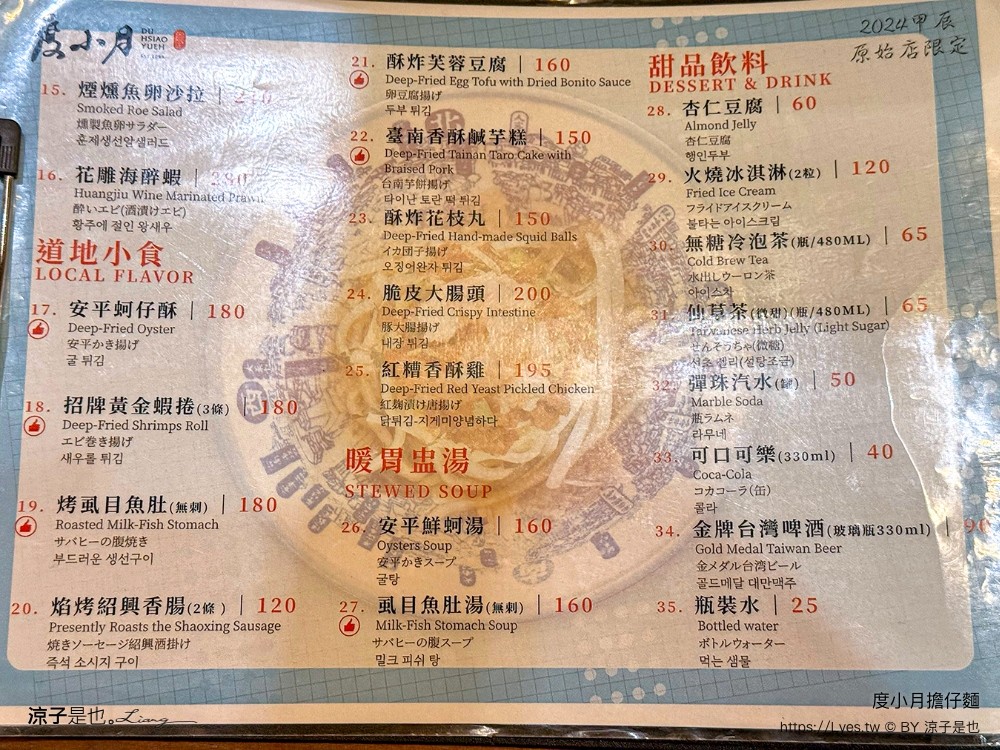 度小月
DU
HSIAO
YUEH
2024甲辰
原始店限定
15. 煙燻魚卵沙拉 |
Smoked Roe Salad
燻製魚卵サラダー
훈제생선알샐러드
16. 花雕海醉蝦 | 280
Huangjiu Wine Marinated Prawn
酔いエビ(酒漬けエビ)
황주에 절인 왕새우
道地小食
LOCAL FLAVOR
17. 安平蚵仔酥 | 180
Deep-Fried Oyster
安平かき揚げ
굴 튀김
18. 招牌黃金蝦捲(3條) | 180
Deep-Fried Shrimps Roll
エビ巻き揚げ
새우롤 튀김
19. 烤虱目魚肚(無刺) | 180
Roasted Milk-Fish Stomach
サバヒーの腹焼き
부드러운 생선구이
20. 焰烤紹興香腸(2條) | 120
Presently Roasts the Shaoxing Sausage
焼きソーセージ紹興酒掛け
즉석 소시지 구이
21. 酥炸芙蓉豆腐 | 160
Deep-Fried Egg Tofu with Dried Bonito Sauce
卵豆腐揚げ
두부 튀김
22. 臺南香酥鹹芋糕 | 150
Deep-Fried Tainan Taro Cake with
Braised Pork
台南芋餅揚げ
타이난 토란 떡 튀김
23. 酥炸花枝丸 | 150
Deep-Fried Hand-made Squid Balls
イカ団子揚げ
오징어완자 튀김
24. 脆皮大腸頭 | 200
Deep-Fried Crispy Intestine
豚大腸揚げ
내장 튀김
25. 紅糟香酥雞 | 195
Deep-Fried Red Yeast Pickled Chicken
紅麹漬け唐揚げ
닭튀김-지게미양념하다
暖胃盅湯
STEWED SOUP
26. 安平鮮蚵湯 | 160
Oysters Soup
安平かきスープ
굴탕
27. 虱目魚肚湯(無刺) | 160
Milk-Fish Stomach Soup
サバヒーの腹スープ
밀크 피쉬 탕
甜品飲料
DESSERT & DRINK
28. 杏仁豆腐 | 60
Almond Jelly
杏仁豆腐
행인두부
29. 火燒冰淇淋(2粒) | 120
Fried Ice Cream
フライドアイスクリーム
불타는 아이스크림
30. 無糖冷泡茶(瓶/480ML) | 65
Cold Brew Tea
水出しウーロン茶
아이스차
31. 仙草茶(微甜)(瓶/480ML) | 65
Taiwanese Herb Jelly (Light Sugar)
せんそうちゃ(微糖)
선초 젤리(설탕조금)
32. 彈珠汽水(罐) | 50
Marble Soda
瓶ラムネ
라무네
33. 可口可樂(330ml) | 40
Coca-Cola
コカコーラ(缶)
콜라
34. 金牌台灣啤酒(玻璃瓶330ml) | 90
Gold Medal Taiwan Beer
金メダル台湾ビール
골드메달 대만맥주
35. 瓶裝水 | 25
Bottled water
ボトルウォーター
먹는 샘물
涼子是也。Liang
度小月擔仔麵
https://Lyes.tw © BY 涼子是也